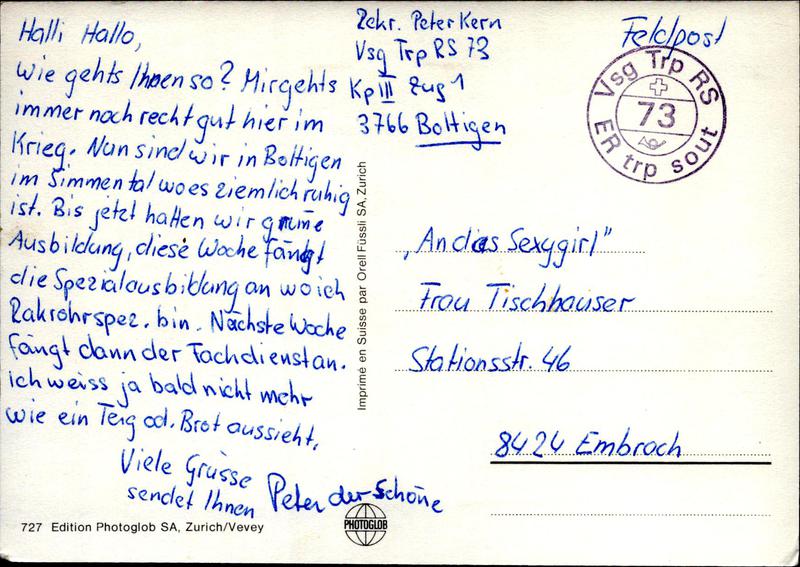 Halli Hallo,
wie gehts Ihnen so? Mir gehts
immer noch recht gut hier im
Krieg. Nun sind wir in Boltigen
im Simmental wo es ziemlich ruhig
ist. Bis jetzt hatten wir grüne
Ausbildung, diese Woche fängt
die Spezialausbildung an wo ich
Rakrohrspez. bin. Nächste Woche
fängt dann der Fachdienst an.
ich weiss ja bald nicht mehr
wie ein Teig od. Brot aussieht.
Viele Grüsse
sendet Ihnen Peter der Schöne
727 Edition Photoglob SA, Zurich/Vevey
PHOTOGLOB
Imprimé en Suisse par Orell Füssli SA, Zurich
Rekr. Peter Kern
Vsg Trp RS 73
Kp III Zug 1
3766 Boltigen
Feldpost
Vsg Trp RS
73
ER trp sout
„An das Sexygirl"
Frau Tischhauser
Stationsstr. 46
8424 Embrach